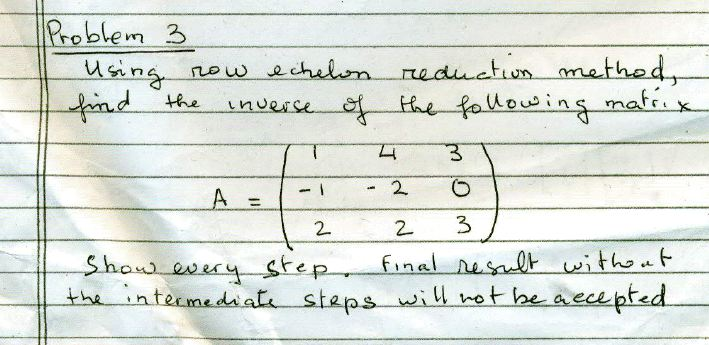 Problem 3
Using row echelon reduction method,
find the inverse of the following matrix
1 4 3
A = -1 -2 0
2 2 3
Show every step. Final result without
the intermediate steps will not be accepted